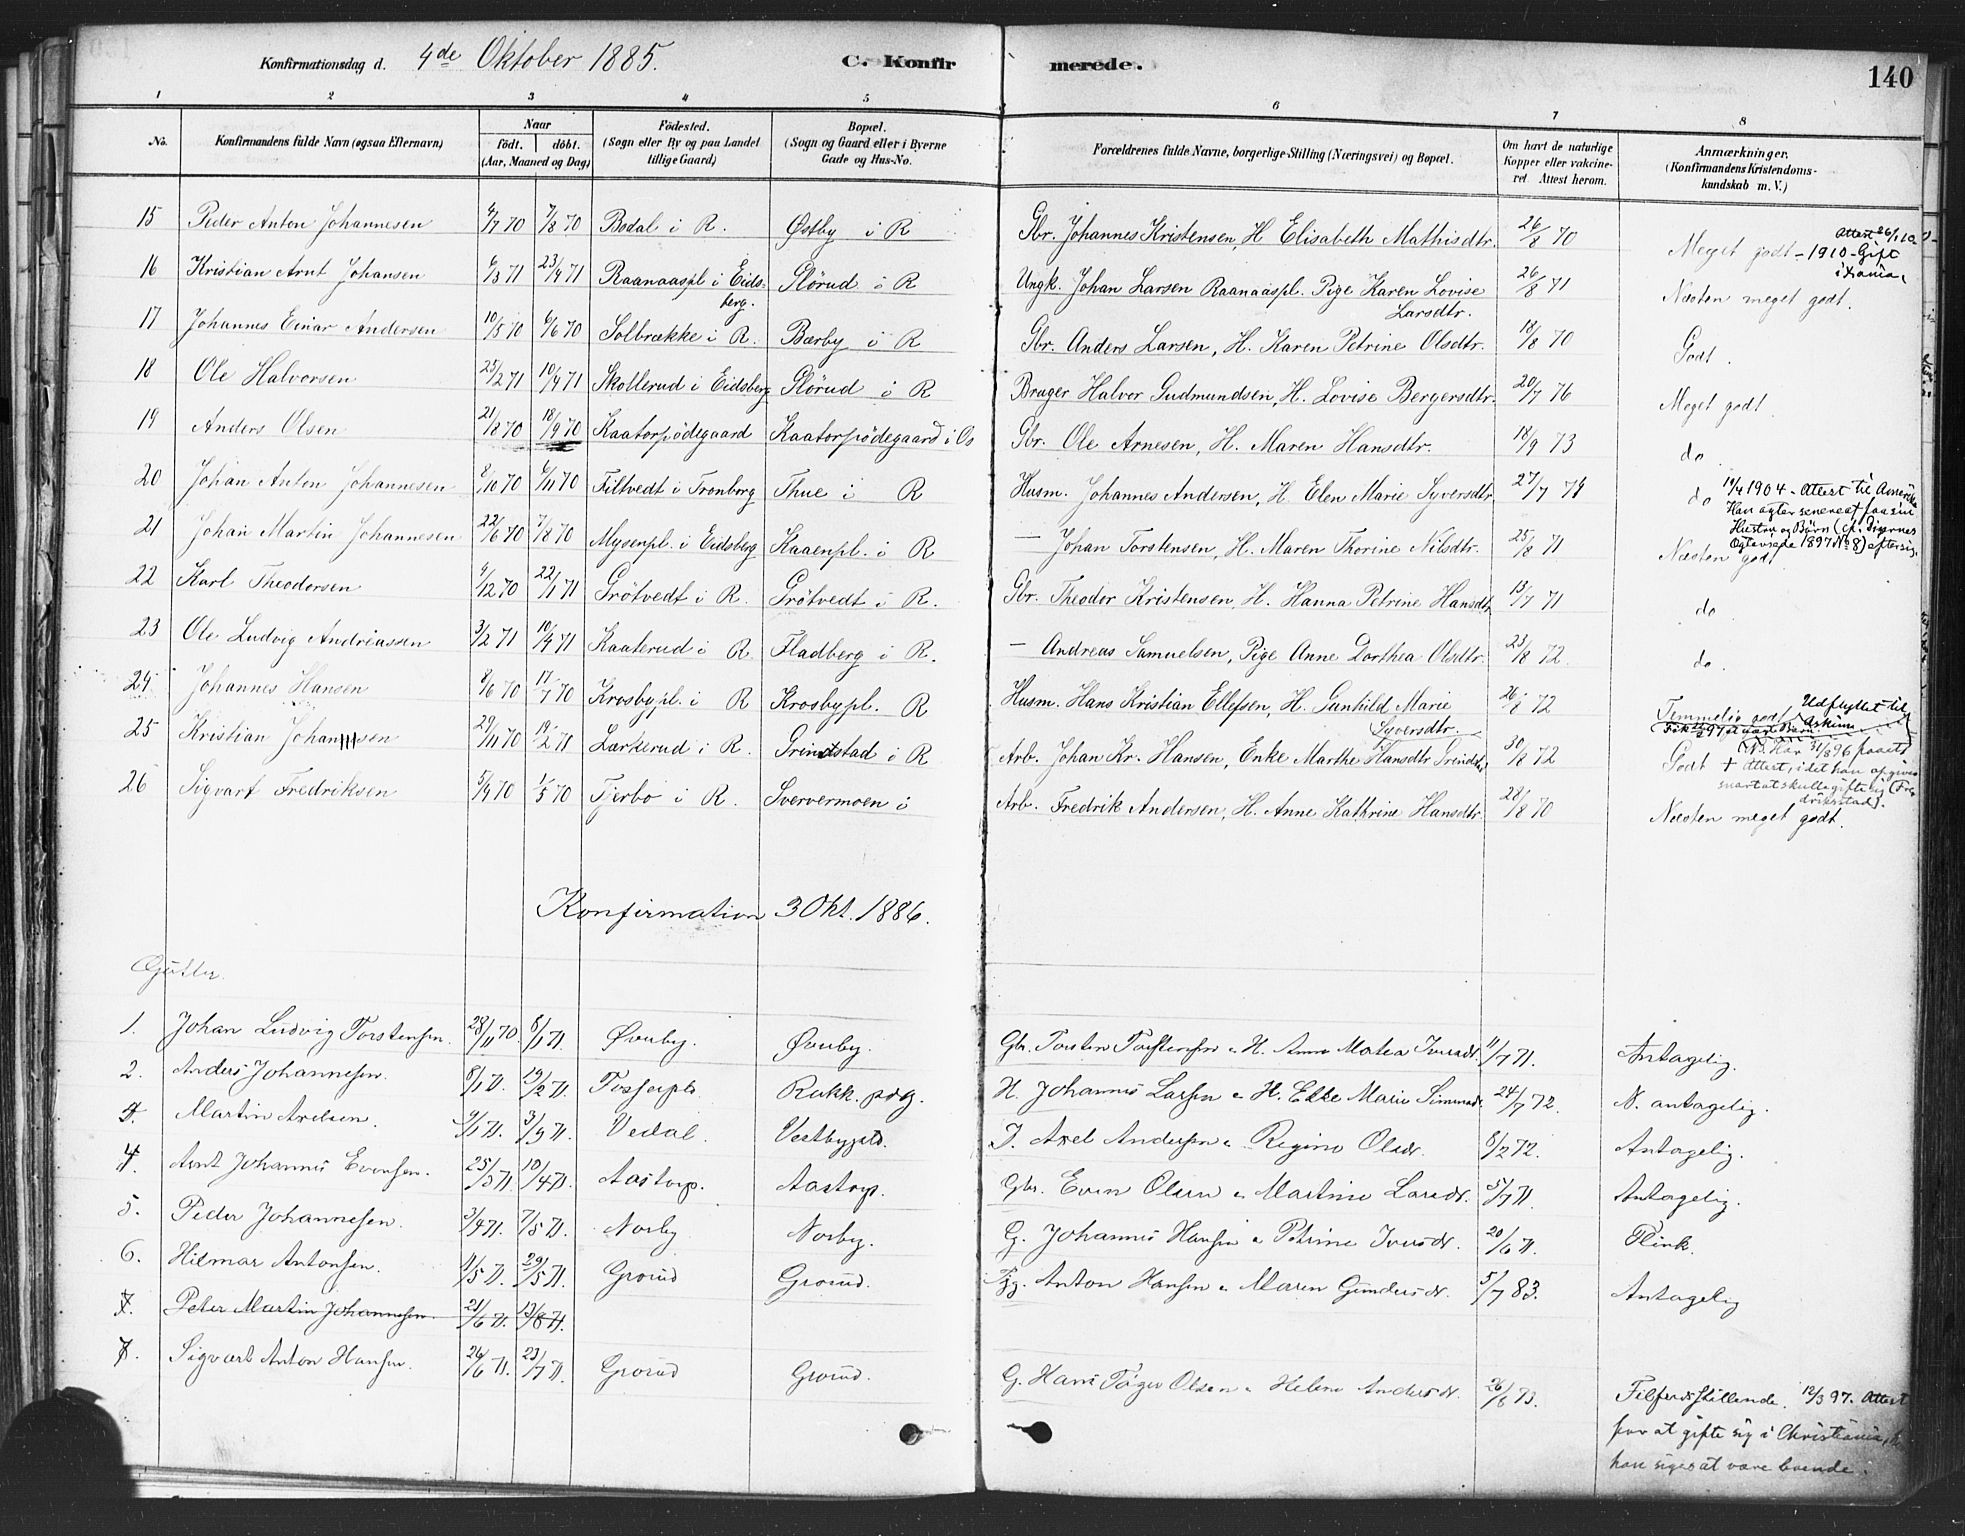 Konfirmationsdag d. 4de Oktober 1885. C. Konfirmerede. 140
1 2 3 4 5 6 7 8
No. Konfirmandens fulde Navn (ogsaa Efternavn) Naar født. døbt. (Aar, Maaned og Dag) Fødested. (Sogn eller By og paa Landet tillige Gaard) Bopæl. (Sogn og Gaard eller i Byerne Gade og Hus-No. Forældrenes fulde Navne, borgerlige Stilling (Næringsvei) og Bopæl. Om havt de naturlige Kopper eller vakcineret. Attest herom. Anmærkninger. (Konfirmandens Kristendomskundskab m. V.)
15 Peder Anton Johannesen 4/7 70 7/8 70 Bodal i R. Østby i R Gbr. Johannes Kristensen, H. Elisabeth Mathisdtr. 26/8 70 Meget godt - 1910 - Gift i Xania. Attest 26/1 10
16 Kristian Arnt Johansen 6/3 71 23/4 71 Raanaaspl i Eidsberg. Slørud i R Ungk. Johan Larsen Raanaaspl. Pige Karen Lovise Larsdtr. 26/8 71 Næsten meget godt.
17 Johannes Einar Andersen 10/5 70 6/6 70 Solbrække i R. Bærby i R Gbr. Anders Larsen, H. Karen Petrine Olsdtr. 18/8 70 Godt.
18 Ole Halvorsen 25/2 71 10/4 71 Skollerud i Eidsberg Slørud i R Bruger Halvor Gudmundsen, H. Lovise Bergersdtr. 20/7 76 Meget godt.
19 Anders Olsen 21/8 70 18/9 70 Kaatorpødegaard Kaatorpødegaard i Os Gbr. Ole Arnesen, H. Maren Hansdtr. 18/9 73 do.
20 Johan Anton Johannesen 8/10 70 6/11 70 Filtvedt i Tronborg Thue i R Husm. Johannes Andersen, H. Elen Marie Syversdtr 27/7 74 do 19/4 1904 - Attest til Amerika Han agter senere at faa sin Hustru og Børn
21 Johan Martin Johannesen 22/6 70 7/8 70 Mysenpl. i Eidsberg Kaaenpl. i R — Johan Torstensen, H. Maren Thorine Nilsdtr. 25/8 71 Næsten godt 1897 No 8) efter sig.
22 Karl Theodorsen 4/12 70 22/1 71 Grøtvedt i R. Grøtvedt i R. Gbr. Theodor Kristensen, H. Hanna Petrine Hansdtr 13/7 71 do.
23 Ole Ludvig Andreassen 3/2 71 10/4 71 Kaaterud i R Fladberg i R. — Andreas Samuelsen, Pige Anne Dorthea Olsdtr. 23/8 72 do.
24 Johannes Hansen 8/6 70 17/7 70 Krosbypl. i R Krosbypl. R Husm. Hans Kristian Ellefsen, H. Gunhild Marie Syversdtr. 26/8 72 Temmelig godt. Udflyttet til Askim
25 Kristian Johansen 29/11 70 19/2 71 Lærkerud i R. Grindstad i R Arb. Johan Kr. Hansen, Enke Marthe Hansdtr Grindst 30/8 72 Godt + Har 31/8 96 faaet Attest, idet han opgives snart at skulle gifte sig (Fredriksstad).
26 Sigvart Fredriksen 5/4 70 1/5 70 Fjerbo i R. Svervemoen i Arb. Fredrik Andersen, H. Anne Kathrine Hansdtr. 28/8 70 Næsten meget godt.
Konfirmation 3 Okt. 1886.
Gutter.
1. Johan Ludvig Torstensen. 28/11 70 8/1 71. Øvreby. Øvreby. Gbr. Torsten Torstensen & H. Anna Matea Iversdr. 11/7 71. Antagelig.
2. Anders Johannesen. 8/1 71. 19/2 71. Rukk. pdg. H. Johannes Larsen & H. Elle Marie Simensdr. 24/7 72. N. antagelig.
3. Martin Axelsen. 9/1 71. 3/9 71. Vedal. Vestbypls. I. Axel Andersen & Regine Olsdr. 8/2 72. Antagelig.
4. Arnt Johannes Evensen. 25/3 71. 10/4 71. Aastorp. Aastorp. Gbr. Even Olsen & Martine Larsdr. 5/7 71. Antagelig.
5. Peder Johannesen. 3/4 71. 7/5 71. Norby Norby. G. Johannes Hansen & Petrine Iversdr. 20/6 71. Flink.
6. Hilmar Antonsen. 11/5 71. 29/5 71. Grorud Grorud. Anton Hansen & Maren Gundersdr. 5/7 83. Antagelig
7. Peter Martin Johannesen. 21/6 71. 13/8 71.
7. Sigvart Anton Hansen. 26/6 71. 23/7 71. Grorud Grorud. G. Hans Olsen & Helene Andersdr. 26/6 73. Tilfredsstillende. 12/3 97. Attest
for at gifte sig i Christiania,
han siges at være boende.